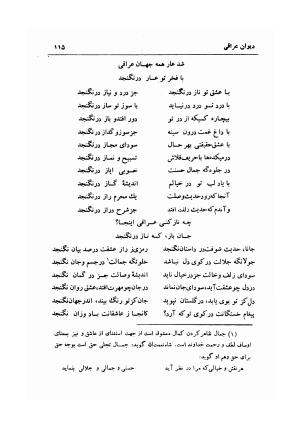 دیوان عراقی
۱۱۵
شد عار همه جهان عراقی
با فخر تو عار درنگنجد
با عشق تو ناز درنگنجد جز درد و نیاز درنگنجد
با درد تو درد در نیاید با سوز تو ساز درنگنجد
بیچاره کسیکه از در تو دور افتد و باز درنگنجد
با داغ غمت درون سینه جز سوز و گداز درنگنجد
با عشق حقیقتی بهر حال سودای مجاز درنگنجد
در میکده ها با حریف قلاش تسبیح و نماز درنگنجد
در جلوه گه جمال حسنت خوبی ایاز درنگنجد
با یاد لب تو در خیالم اندیشهٔ گاز درنگنجد
آنجا که رود حدیث وصلت یک محرم راز درنگنجد
وآندم که حدیث زلفت افتد جز شرح دراز درنگنجد
چه ناز کنی عراقی اینجا؟
جان باز، که ناز درنگنجد
جانا، حدیث شوقت در داستان نگنجد رمزی ز راز عشقت در صد بیان نگنجد
جولانگه جلالت در کوی دل نباشد خلوتگه جمالت در جسم و جان نگنجد
سودای زلف و خالت جز در خیال ناید اندیشهٔ وصالت جز در گمان نگنجد
در دل چو عشقت آید، سودای جان نماند در جان چو مهرت افتد، عشق روان نگنجد
دل کز تو بوی یابد، در گلستان نپوید جان کز تو رنگ بیند، اندر جهان نگنجد
پیغام خستگانت در کوی تو که آرد؟ کانجا ز عاشقانت باد وزان نگنجد
(۱) جمال ظاهر کردن کمال معشوق است از جهت استغنای از عاشق و نیز بمعنای
اوصاف لطف و رحمت خداوند است. شاه نعمت الله گوید: جمال تجلی حق است بوجه حق
برای حق دهم او گوید:
هر نقش و خیالی که مرا در نظر آید حسنی و جمالی و جلالی بنماید